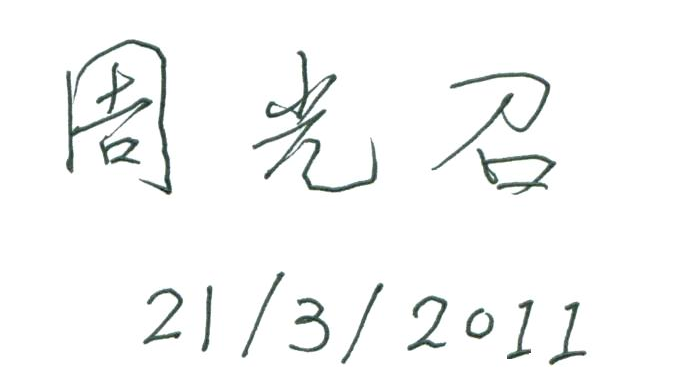 周光召
21/3/2011